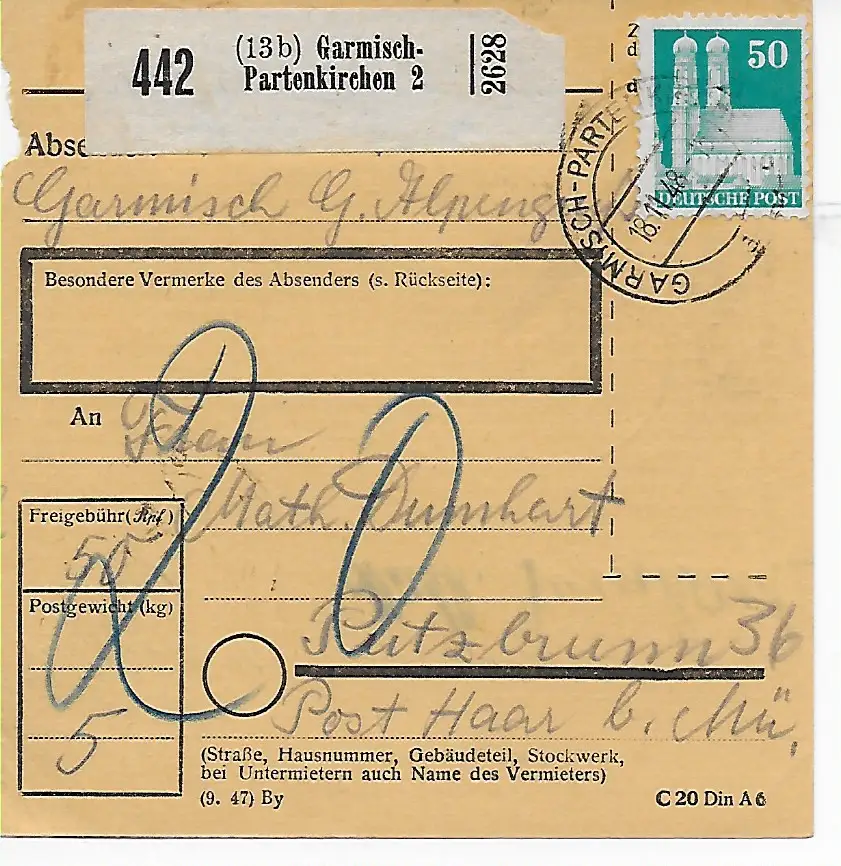 442 (13b) Garmisch-
Partenkirchen 2
2628
Z
d
d
50
DEUTSCHE POST
GARMISCH-PARTENKIR
18.11.48
Abse
Garmisch G. Alpeng
Besondere Vermerke des Absenders (s. Rückseite):
An
Math. Dumhart
Freigebühr (Rpf)
50
Postgewicht (kg)
5
20
Putzbrunn 36
Post Haar b. Mü,
(Straße, Hausnummer, Gebäudeteil, Stockwerk,
bei Untermietern auch Name des Vermieters)
(9. 47) By
C 20 Din A 6